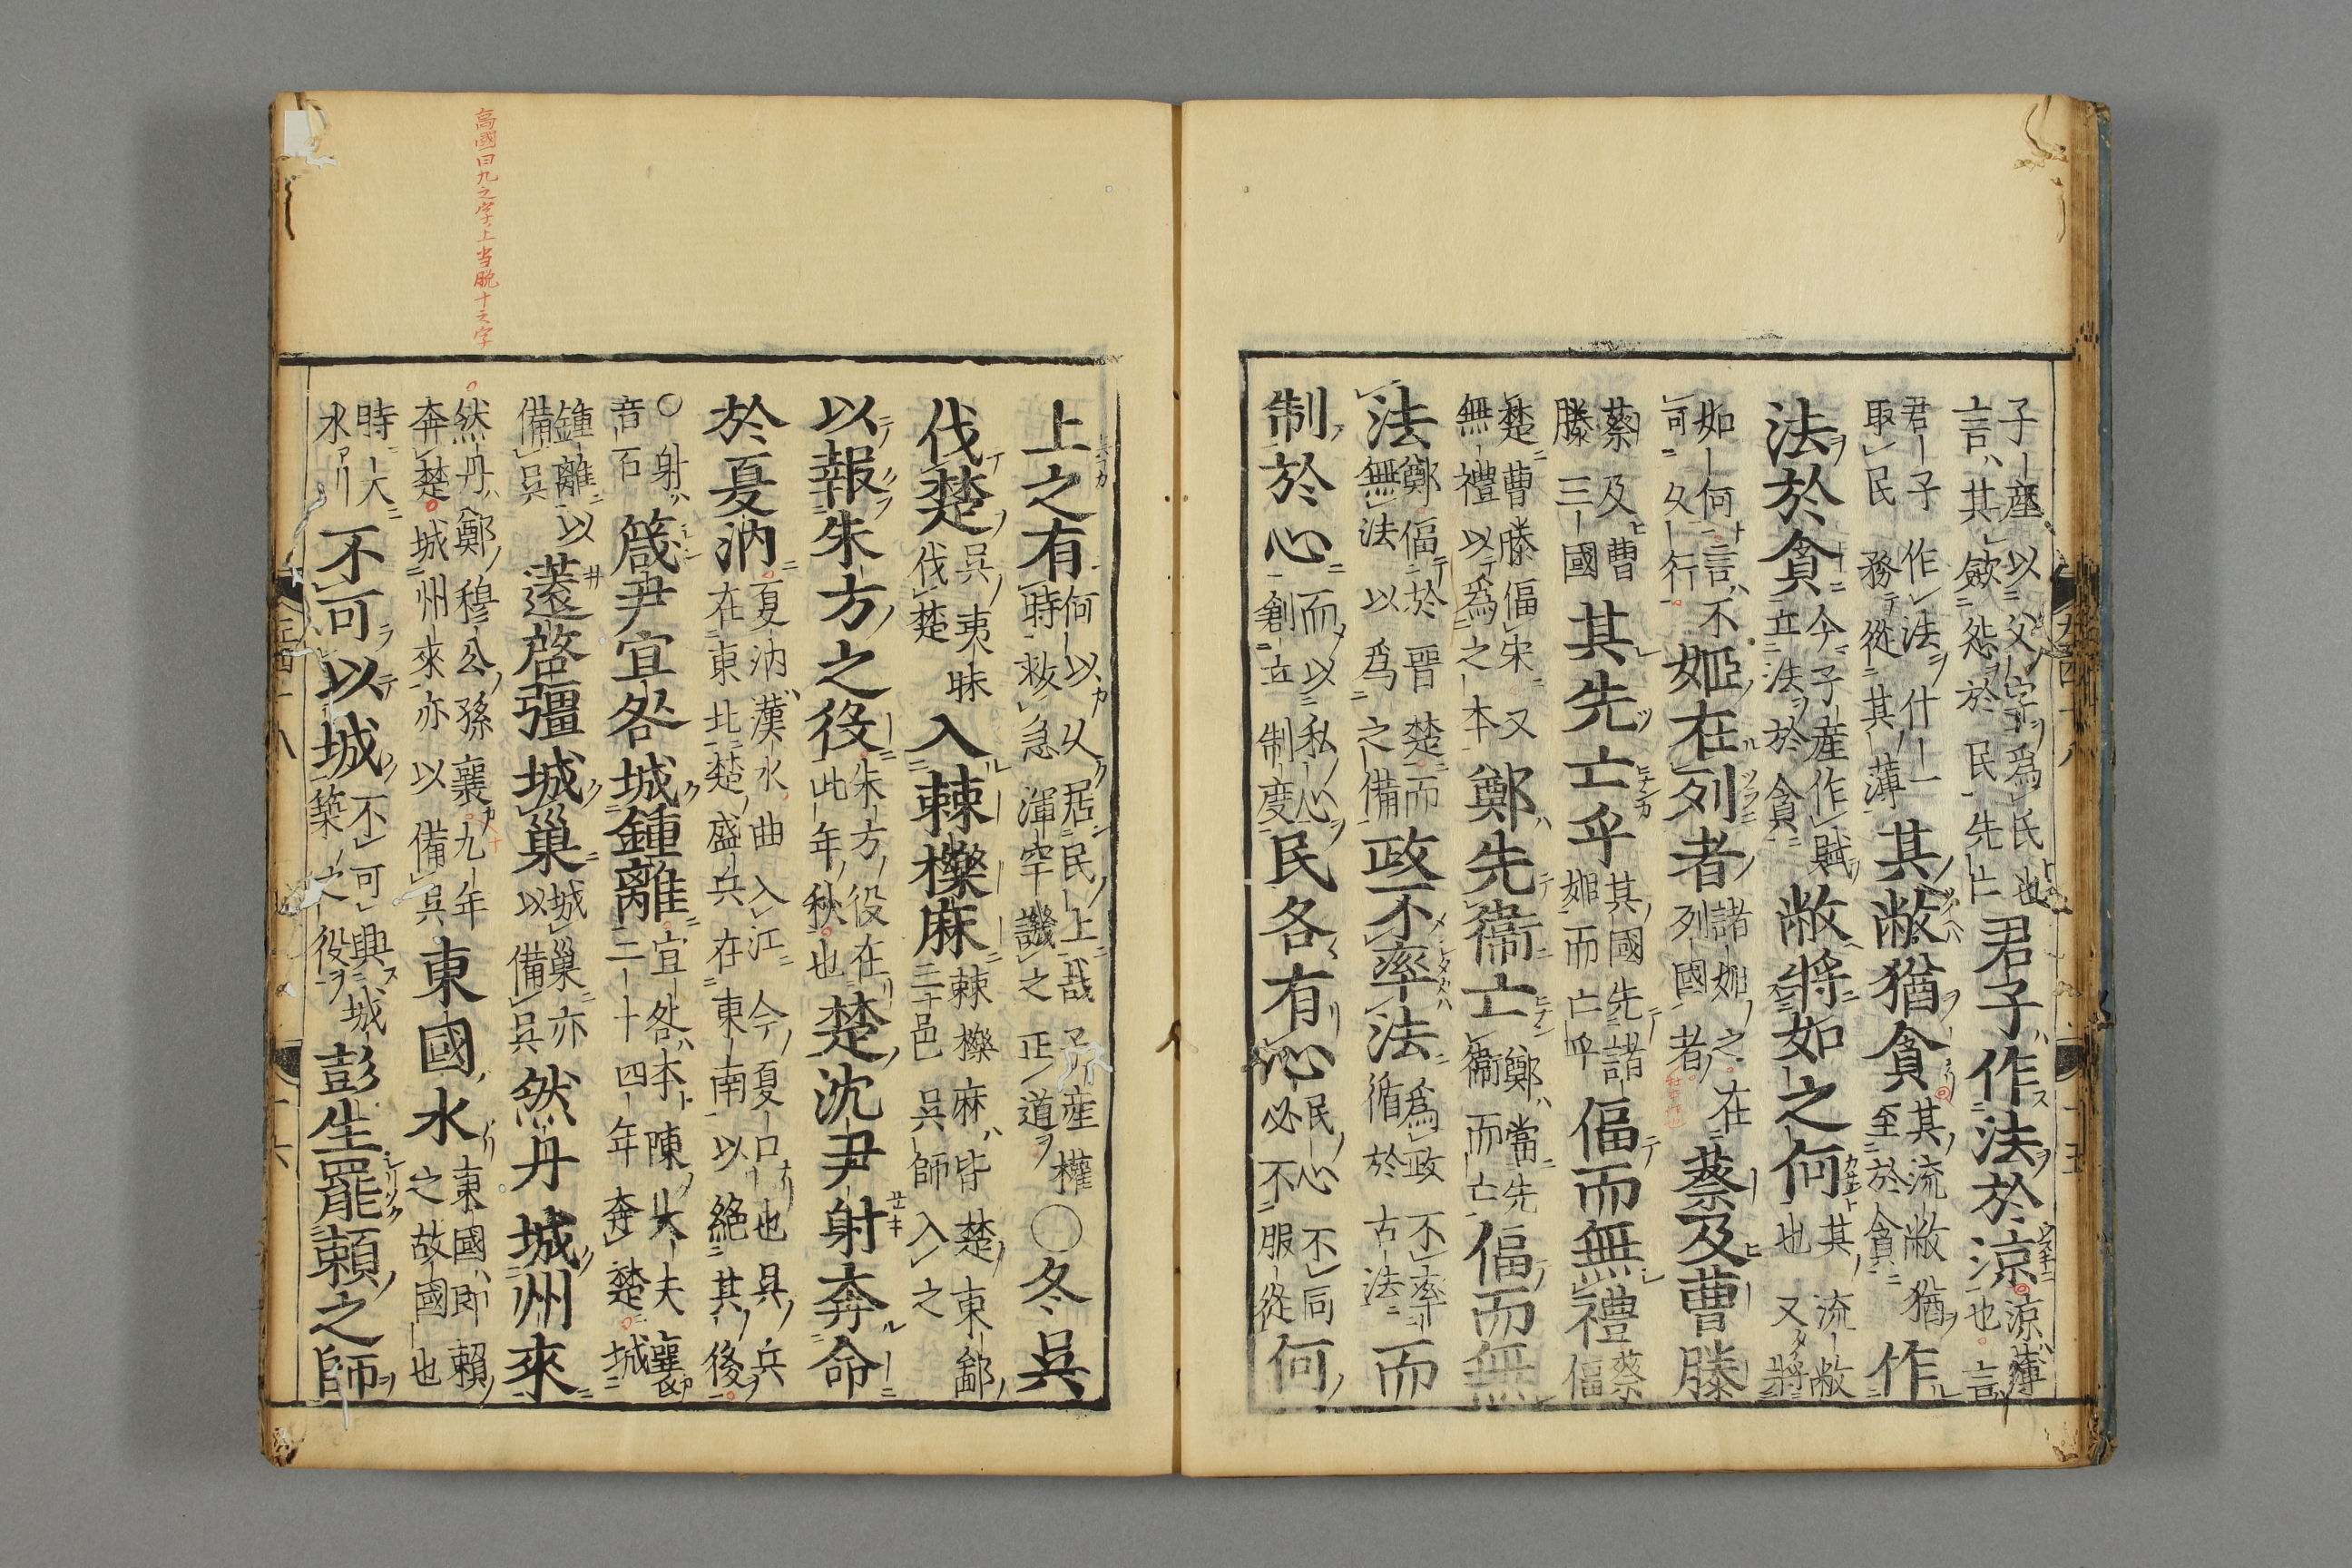 子產以父字爲氏也
言其歛怨於民先亡
君子作法於涼涼薄也言
君子作法什一
取民務從其薄
其敝猶貪其流敝猶至於貪
作
法於貪今子產作賦立法於貪
敝將如之何其流敝又將
也
如何言不
可久行
姬在列者諸姬之在列國者
蔡及曹滕
蔡及曹
滕三國
其先亡乎其國先諸姬而亡乎
偪而無禮蔡偪
楚曹滕偪宋又
無禮以爲之本
鄭先衞亡鄭當先衞而亡
偪而無
法鄭偪於晉楚而無法以爲之備
政不率法爲政不率循於古法
而
制於心而以私心創立制度
民各有心民心不同必不服從
何
上之有何以久居民上哉時救急渾罕譏之子產權正道
○冬吳
伐楚吳夷昧伐楚
入棘櫟麻棘櫟麻皆楚東鄙三邑吳師入之
以報朱方之役朱方役在此年秋也
楚沈尹射奔命
於夏汭夏汭漢水曲入江今夏口也吳兵在東北楚盛兵在東南以絶其後
○射音石
箴尹宜咎城鍾離宜咎本陳大夫襄二十四年奔楚城
鍾離以備吳
薳啓彊城巢城巢亦以備吳
然丹城州來
然丹鄭穆公孫襄九年
奔楚城州來亦以備吳
東國水東國即賴之故國也
時大水
不可以城不可興城築之役
彭生罷賴之師
高國曰九之字上当脫十之字